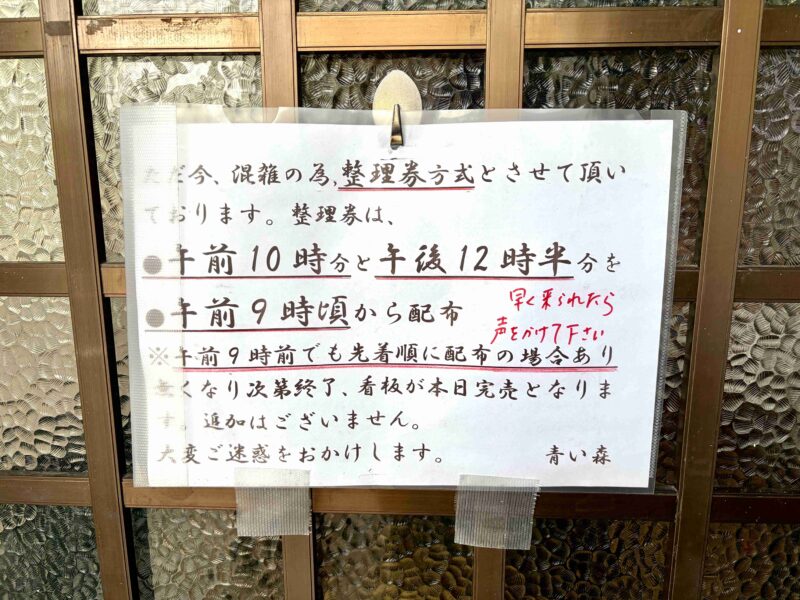 ただ今、混雑の為、整理券方式とさせて頂い
ております。整理券は、
●午前10時分と午後12時半分を
●午前9時頃から配布
早く来られたら
声をかけて下さい
※午前9時前でも先着順に配布の場合あり
無くなり次第終了、看板が本日完売となりま
す。追加はございません。
大変ご迷惑をおかけします。 青い森